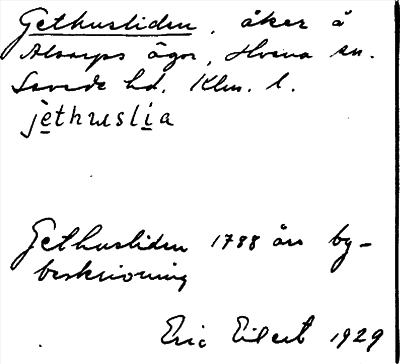 Gethusliden, åker å
Alsarps ägor, Hvena sn.
Sevede hd. Klm. l.
jèthuslìa
Gethusliden 1788 års by-
beskrivning
Eric Eilert 1929